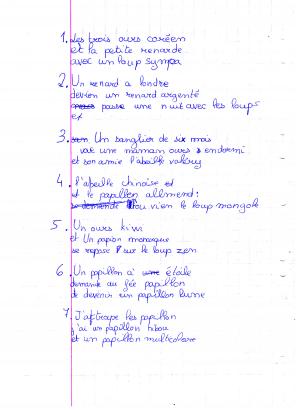 1. Les trois ours coréen
et la petite renarde
avec un loup sympa
2. Un renard a londre
devien un renard argenté
passe une nuit avec les loups
et
3. Un sanglier de six mois
voit une maman ours endormi
et son amie l'abeille valery
4. l'abeille chinoise et
et le papillon allmend:
se demande d'ou vien le loup mongole
5. Un ours kiwi
et Un papion monarque
se repose sur le loup zen
6. Un papillon a étoile
demande au fée papillon
de devenir un papillon lune
7. J'attrape les papillon
j'ai un papillon hibou
et un papillon multicolore